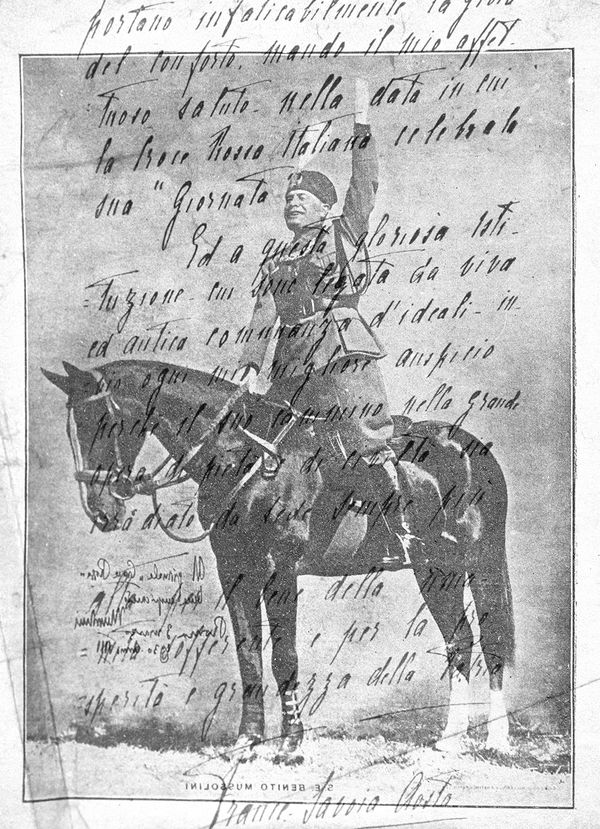 portano infaticabilmente la gioia
del conforto, mando il mio affet-
tuoso saluto nella data in cui
la Croce Rossa Italiana celebra la
sua "Giornata"
Ed a questa gloriosa Isti-
=tuzione cui sono legata da viva
ed antica comunanza d'ideali- in-
=vio ogni mio migliore auspicio
perchè il suo cammino nella grande
opera di pietà e di civiltà
da fede sempre più
il bene della
sofferente e per la pro
=sperità e grandezza della Patria
Al giornale "Croce Rossa"
Mussolini
Roma 3 marzo
1930
S. E. BENITO MUSSOLINI
Savoia Aosta